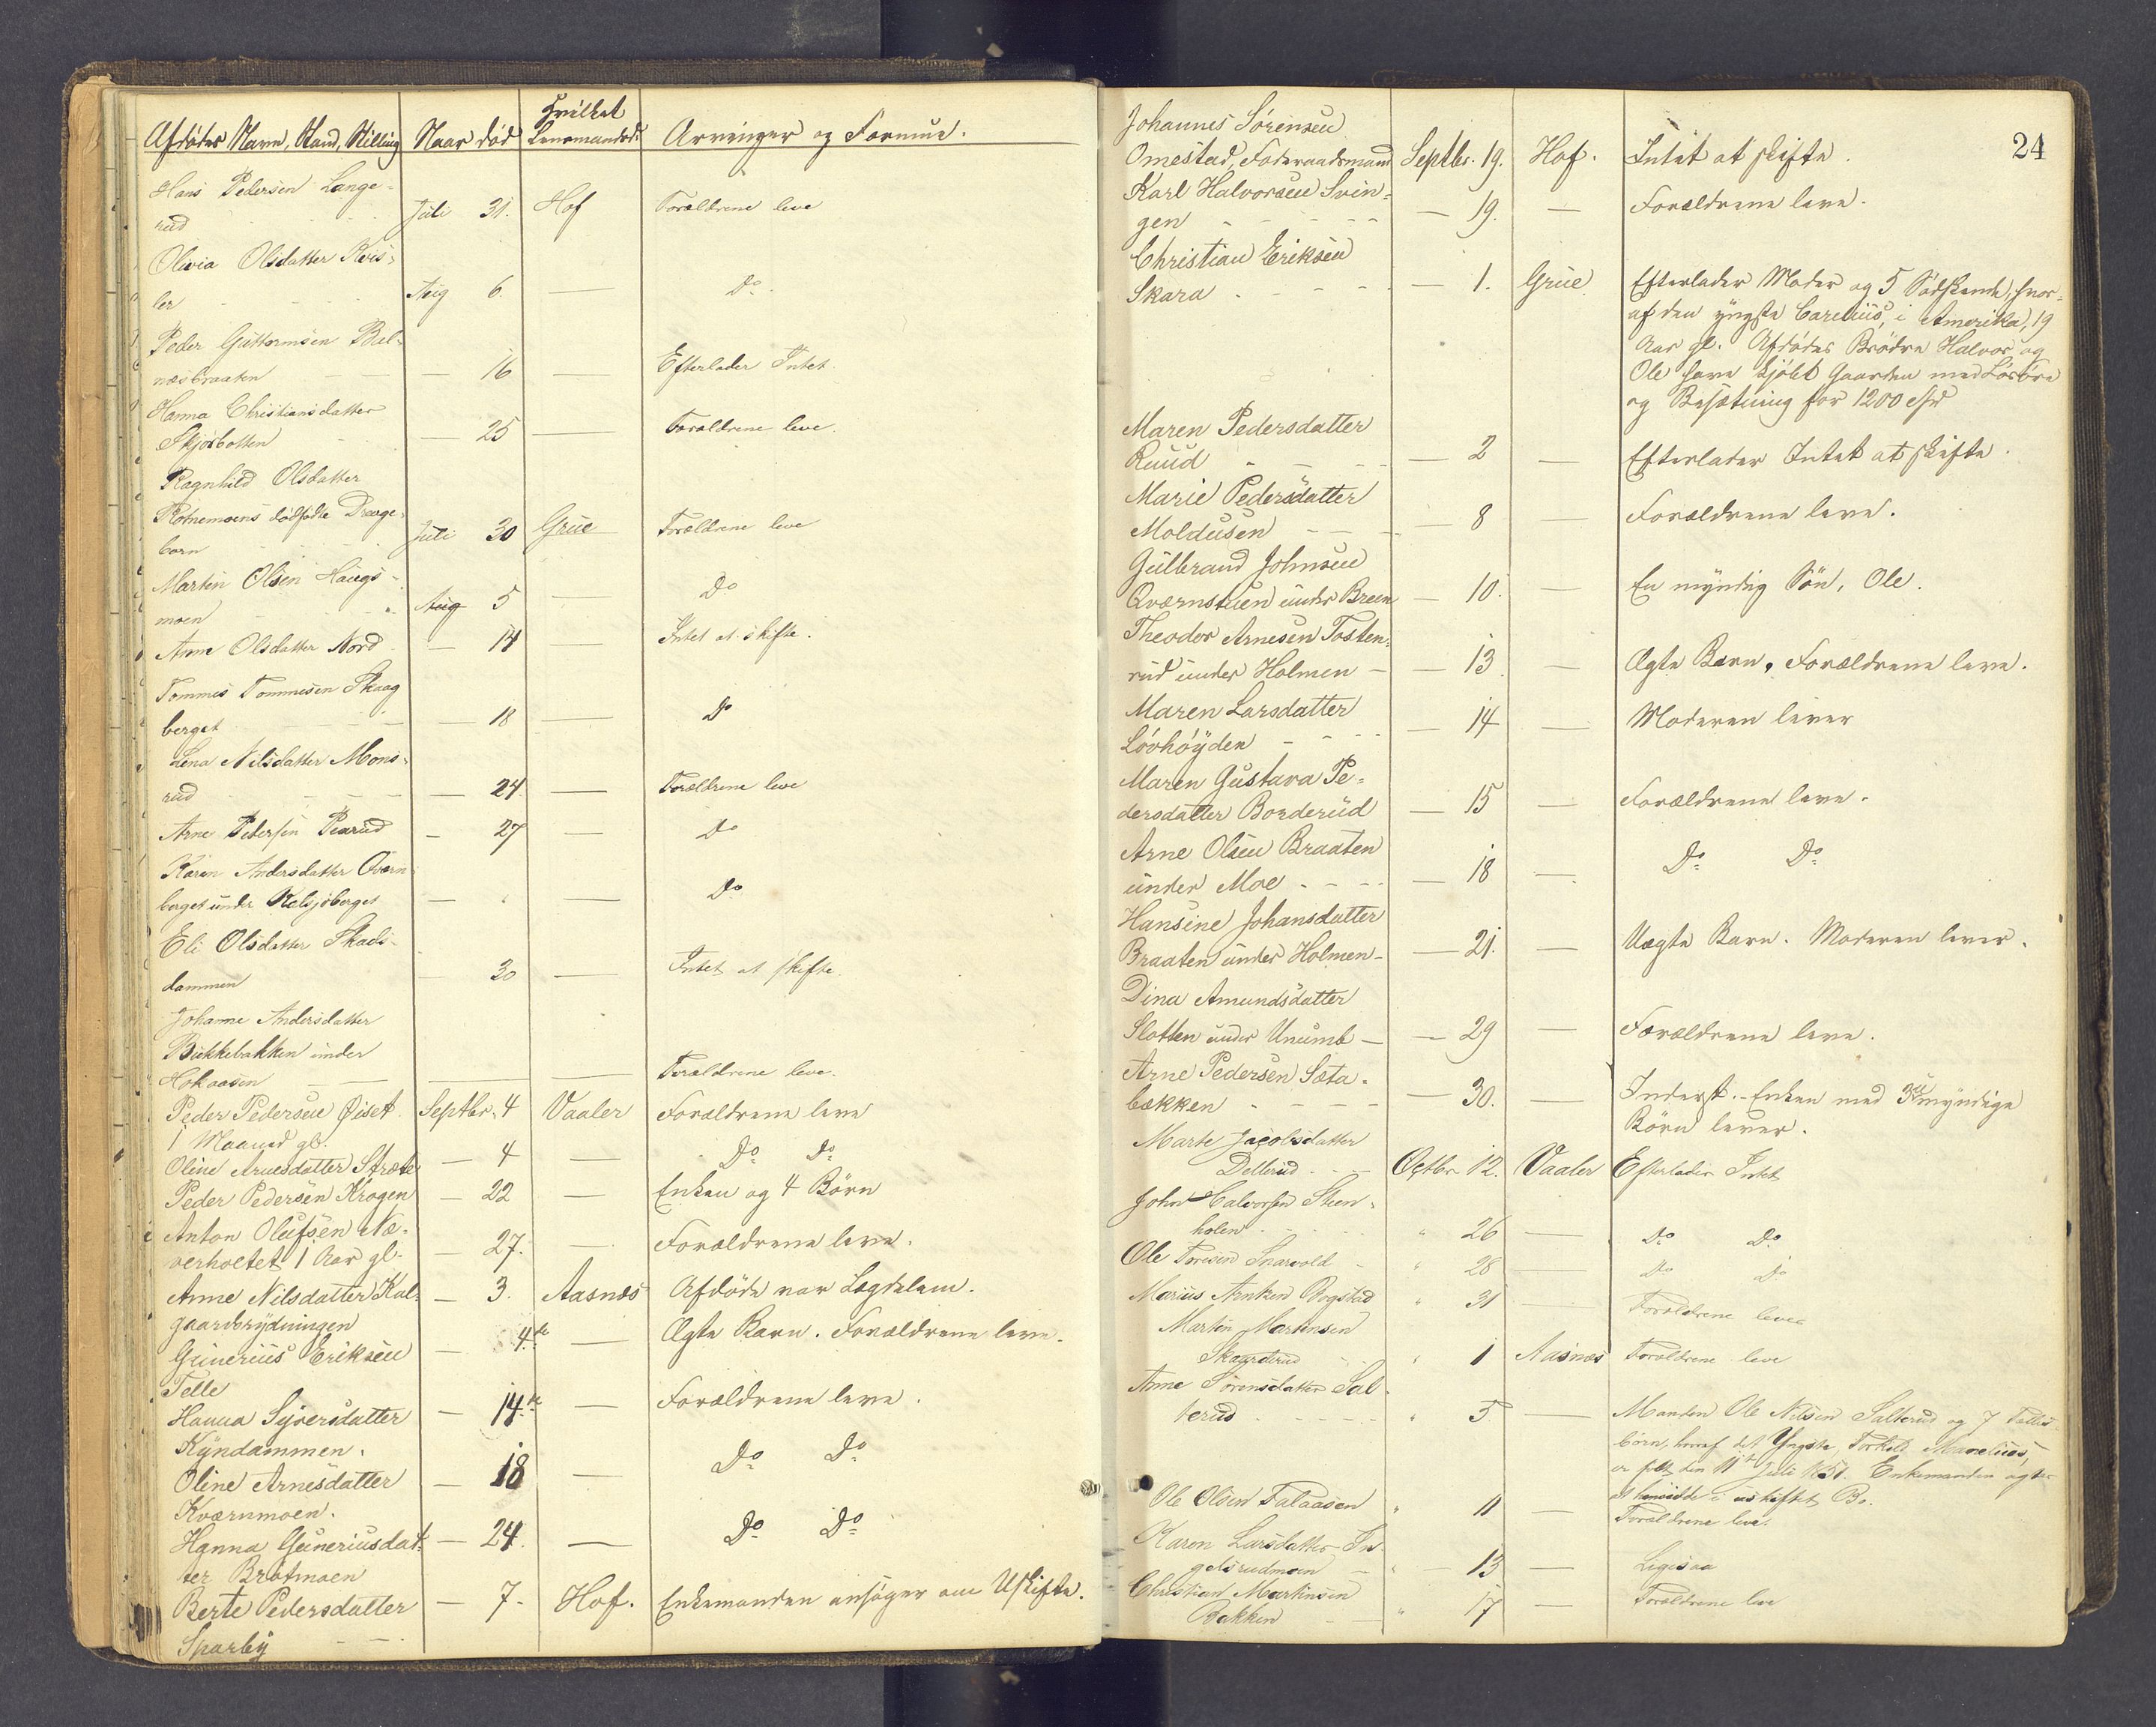 Hvilket
Afdødes Navn, Stand, Stilling Naar død Lensmandsd: Arvinger og Formue.
Hans Pedersen Lange-
rud Juli 31. Hof Forældrene leve
Olivia Olsdatter Kvis-
ler Aug 6. — Do.
Peder Guttormsen Bul-
næsbraaten — 16 — Efterlader Intet.
Hanna Christiansdatter
Skjørbotten — 25 — Forældrene leve.
Ragnhild Olsdatter
Rotnemoens dødfødte Drenge-
barn Juli 30 Grue Forældrene leve
Martin Olsen Haugs-
moen Aug 5 — Do
Anne Olsdatter Nord — 14 — Intet at skifte.
Tommes Tommesen Skaag
berget — 18 — Do
Lena Nilsdatter Mons-
rud — 24. — Forældrene leve
Arne Pedersen Perrud — 27 — Do
Karen Andersdatter Qværn
berget under Kelsjøberget — " — Do
Eli Olsdatter Skads-
dammen — 30 — Intet at skifte.
Johanne Andersdatter
Bukkebakken under
Hokaasen — — Forældrene leve.
Peder Pedersen Øiset Septbr. 4 Vaaler Forældrene leve
1 Maaned gl.
Oline Arnesdatter Stræte — 4 — Do Do
Peder Pedersen Krogen — 22 — Enken og 4 Børn
Anton Olufsen Næ-
verholtet 1 Aar gl. — 27. — Forældrene leve.
Anne Nilsdatter Kal- — 3. Aasnæs Afdøde var Lægdslem.
gaardsrydningen
Gunerius Eriksen — 4de — Ægte Barn. Forældrene leve.
Telle
Hanna Syversdatter — 14de — Forældrene leve.
Kyndammen.
Oline Arnesdatter — 18 — Do Do
Kværnmoen.
Hanna Guneriusdat- — 24. — Do Do
ter Bratmoen
Berte Pedersdatter — 7. Hof. Enkemanden ansøger om Uskifte.
Sparby
24
Johannes Sørensen
Omestad, Føderaadsmand Septbr. 19. Hof. Intet at skifte.
Karl Halvorsen Svin-
gen — 19. — Forældrene leve.
Christian Eriksen
Skara — 1. Grue Efterlader Moder og 5 Sødskende, hvor-
af den yngste Carelius, i Amerika, 19
Aar gl. Afdødes Brødre Halvor og
Ole have kjøbt Gaarden med Løsøre
og Besætning for 1200 Spd
Maren Pedersdatter
Ruud — 2 — Efterlader Intet at skifte.
Marie Pedersdatter
Moldusen — 8 — Forældrene leve.
Gulbrand Johnsen
Qværnstuen under Breen — 10. — En myndig Søn, Ole.
Theodor Arnesen Tosten-
rud under Holmen — 13. — Ægte Barn, Forældrene leve.
Maren Larsdatter
Løvhøyden — 14 — Moderen lever
Maren Gustava Pe-
dersdatter Borderud — 15 — Forældrene leve.
Arne Olsen Braaten
under Moe — 18 — Do Do
Hansine Johansdatter
Braaten under Holmen — 21. — Uægte Barn. Moderen lever.
Dina Amundsdatter
Slotten under Unumb — 29 — Forældrene leve.
Arne Pedersen Sæta-
bækken — 30. — Inderst. Enken med 3 umyndige
Børn lever.
Marte Jacobsdatter
Dellerud Octbr 12. Vaaler Efterlader Intet
John Halvorsen Steen-
holen " 26 — Do Do
Ole Toresen Snarvold " 28 — Do Do
Marius Arntsen Bogstad " 31 — Forældrene leve
Martin Martinsen
Skaarderud " 1 Aasnæs Forældrene leve
Anne Sørensdatter Sal-
terud " 5 — Manden Ole Nilsen Salterud og 7 Fælles-
børn, hvoraf det Yngste, Torkel Marelius,
er født den 11te Juli Enkemanden agter
at hensidde i uskiftet Bo.
Ole Olsen Falaasen " 11 — Forældrene leve.
Karen Larsdatter In-
gelsrudmoen " 13 — Ligesaa
Christian Martinsen
Bakken " 17 — Forældrene leve